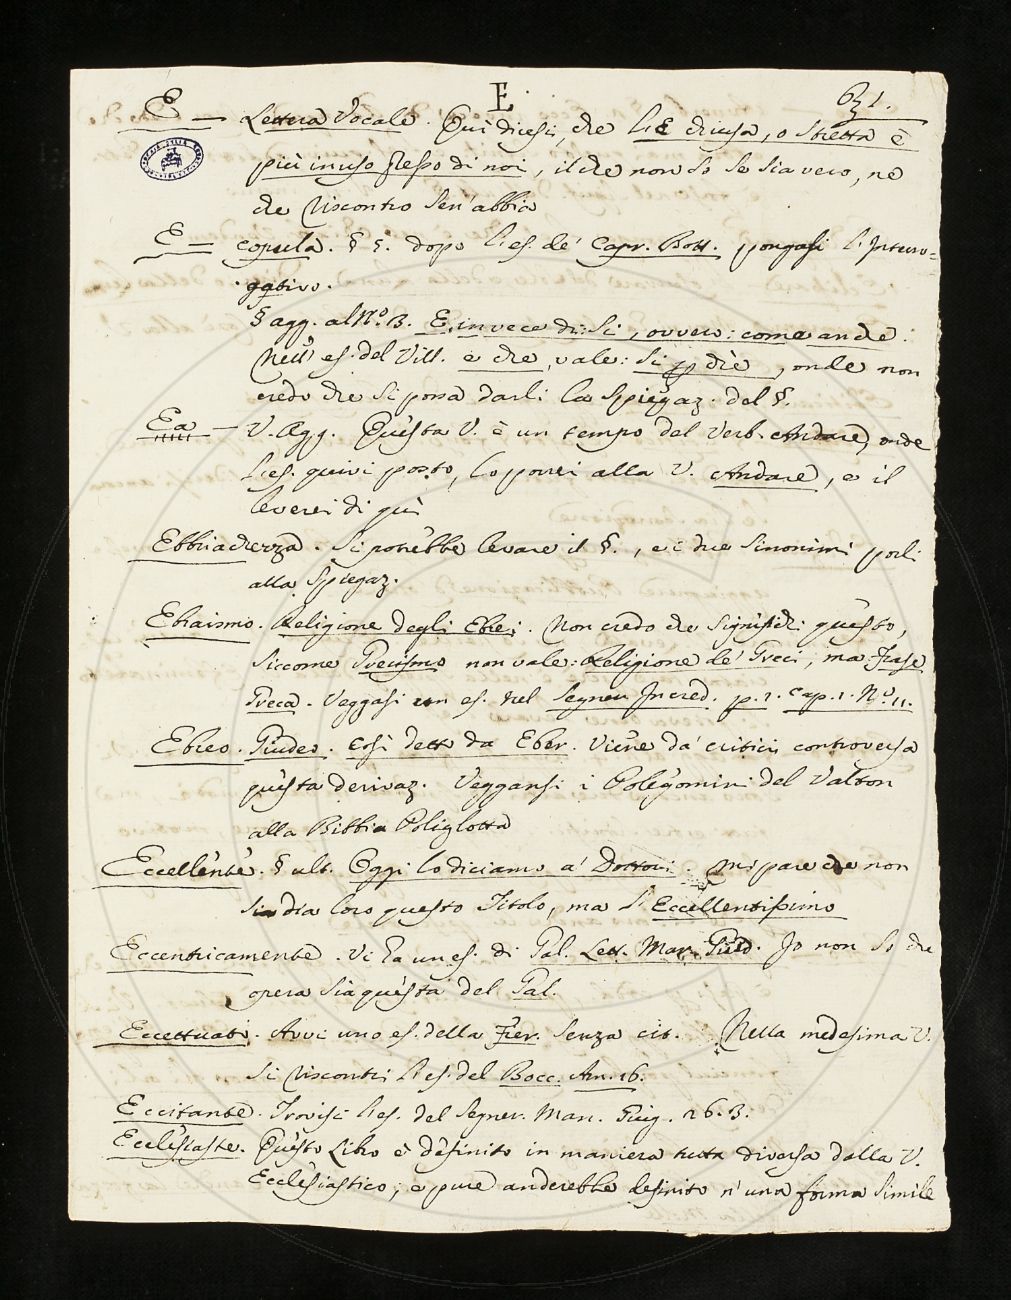 E
E — Lettera Vocale. Qui dicesi, che l'E chiusa, o stretta è
più in uso presso di noi, il che non so se sia vero, nè
che riscontro sen'abbia
E = copula. § 5. dopo l'es. de' Capr. Bott. pongasi l'Interro=
gativo.
§ agg. al N.º 3. E, in vece di: Si, ovvero: come anche.
Nell'es. del Vill. e che, vale: si che, onde non
credo che si possa darli la Spiegaz. del §.
Ea — V. Agg. Questa V. è un tempo del Verb. Andare, onde
l'es. quivi posto, lo porrei alla V. Andare, e il
leverei di qui
Ebbriachezza. Si potrebbe levare il §., e i due sinonimi porli
alla Spiegaz.
Ebraismo. Religione degli Ebrei. Non credo che significhi questo,
siccome Grecismo non vale: Religione de' Greci, ma Frase
Greca. Veggasi un es. nel Segner Incred. p. 1. cap. 1. N.º 11.
Ebreo. Giudeo. così detto da Eber. Viene da' critici controversa
questa derivaz. Veggansi i Prolegomini del Valton
alla Bibbia Poliglotta
Eccellente. § ult. Oggi lo diciamo a' Dottori. Mi pare che non
si dia loro questo Titolo, ma l'Eccellentissimo
Eccentricamente. Vi ha un es. di Gal. Lett. Mar. Guid. Io non so che
opera sia questa del Gal.
Eccettuati. Avvi uno es. della Fier. senza cit. Nella medesima V.
si riscontri l'es. del Bocc. An. 16.
Eccitante. Trovisi l'es. del Segner. Man. Giug. 26. 3.
Ecclesiaste. Questo Libro è definito in maniera tutta diversa dalla V.
Ecclesiastico, e pure anderebbe definito n'una forma simile